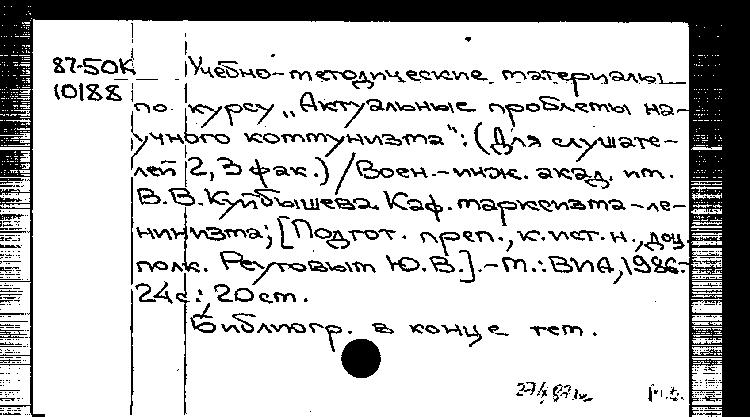 87-50К Учебно-методические материалы
10188 по курсу „Актуальные проблемы на-
учного коммунизма“: (Для слушате-
лей 2,3 фак.) / Воен.-инж. акад. им.
В.В.Куйбышева. Каф. марксизма-ле-
нинизма; [Подгот. преп., к.ист.н., доц.
полк. Реутовым Ю.В.].-М.: ВИА, 1986.-
24с.; 20см.
Библиогр. в конце тем.